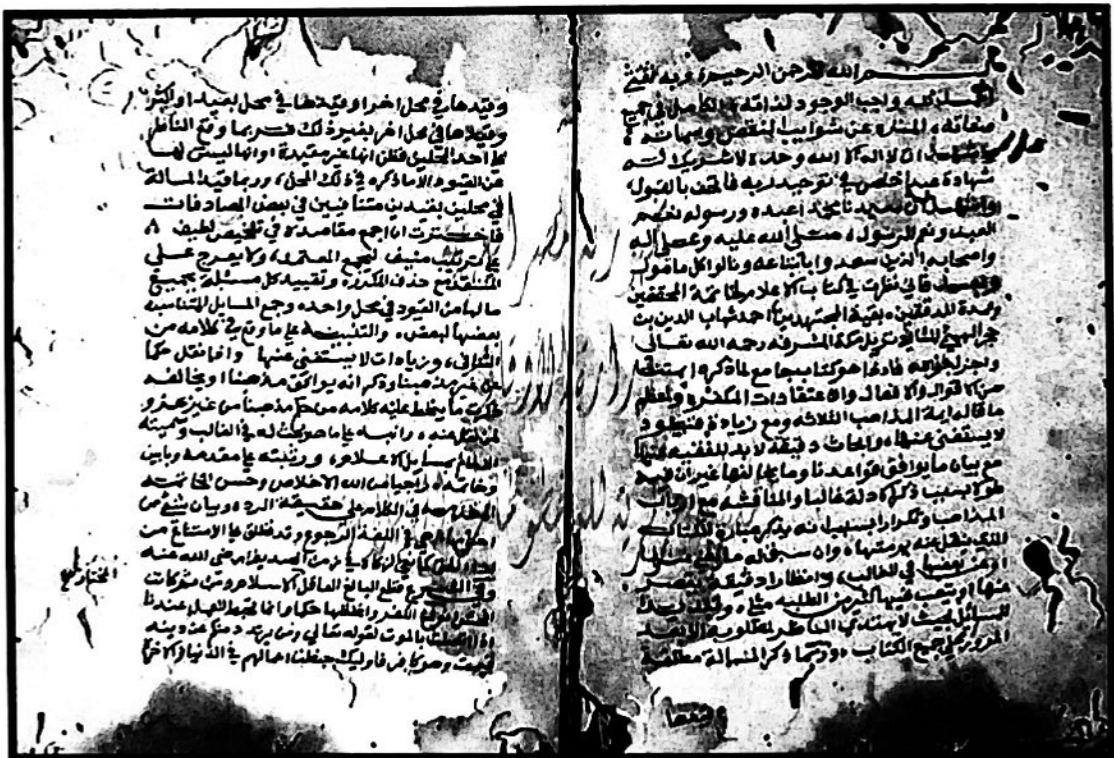 بسم الله الرحمن الرحيم وبه ثقتي
الحمد لله واجب الوجود لذاته الكامل في جميع
صفاته المنزه عن شوايب النقص وسماته
واشهد ان لا اله الا الله وحده لا شريك له
شهادة عبد اخلص في توحيد ربه فالحق بالقول
واشهد ان سيدنا محمدا عبده ورسوله نعم
العبد ونعم الرسول، صلى الله عليه وعلى اله
واصحابه الذين سعدوا باتباعه ونالوا كل مامول
وبعد فاني نظرت في كتاب الاعلام لخاتمة المحققين
وعمدة المدققين، بقية المجتهدين احمد شهاب الدين بن
حجر الهيتمي نزيل مكة المشرفه رحمه الله تعالى
فاذا هو كتاب جامع لما ذكره
من الاقوال والافعال والاعتقادات المكفرة ولمعظم
ما قاله ايمة المذاهب الثلاثه ومع زيادة
لا يستغنى عنها، وابحاث دقيقه لا بد للفقيه منها
مع بيان ما يوافق قواعدنا وما يخالفها غير ان فيه
طولا بسبب ذكره ادلة غالبا والمناقشه مع ارباب
المذاهب وتكرارا بسبب انه يذكر عبارة الكتاب
الذي ينقل عنه برمتها، وان سبق له
في الغالب، وانظارا دقيقة يقصر
عنها او يتعب فيها كثير من الطلبه مثلي،
المسائل بحيث لا يهتدي الناظر لمطلوبه الا بعد
المرور على جميع الكتاب، وربما ذكر المسالة مطلقة
وقيدها
وقيدها في محل اخر او قيدها في محل بقيد او اكثر
وقيدها في محل اخر بغير ذلك فربما وقع الناظر
على احد المحلين فظن انها غير مقيدة او انها ليس لها
من القيود الا ما ذكره في ذلك المحل، وربما قيد المسالة
في محلين بقيدين متنافيين في بعض المصادفات
فاخترت ان اجمع مقاصده في تلخيص لطيف
على ترتيب منيف يجمع المعتمد، ولا يعرج على
المنتقد مع حذف المكرر، وتقييد كل مسئلة بجميع
ما لها من القيود في محل واحد، وجمع المسايل المتناسبه
بعضها لبعض، والتنبيه على ما وقع في كلامه من
التنافي، وزيادات لا يستغنى عنها واذا نقل حكما
عن غير مذهبنا وذكر انه يوافق مذهبنا او يخالفه
ذكرت ما يخلط عليه كلامه من حكم مذهبنا من غير عزو
لمن نقل عنه، وانبه على ما صورته له في الغالب وسميته
الاعلام بمسايل الاعلام، ورتبته على مقدمه وبابين
وخاتمه، راجيا من الله الاخلاص وحسن الخاتمه
المقدمه في الكلام على حقيقة الرده وبيان شئ من
احكامها، هي في اللغة الرجوع وقد تطلق على الامتناع من
اداء الحق كمانعي الزكاة في زمن الصديق رضي الله عنه
وفي الشرع قطع البالغ العاقل الاسلام ومن ثم كانت
افحش انواع الكفر واغلظها حكما وانما تحبط العمل عندنا
اذا اتصلت بالموت لقوله تعالى ومن يرتدد منكم عن دينه
فيمت وهو كافر فاوليك حبطت اعمالهم في الدنيا والاخرة